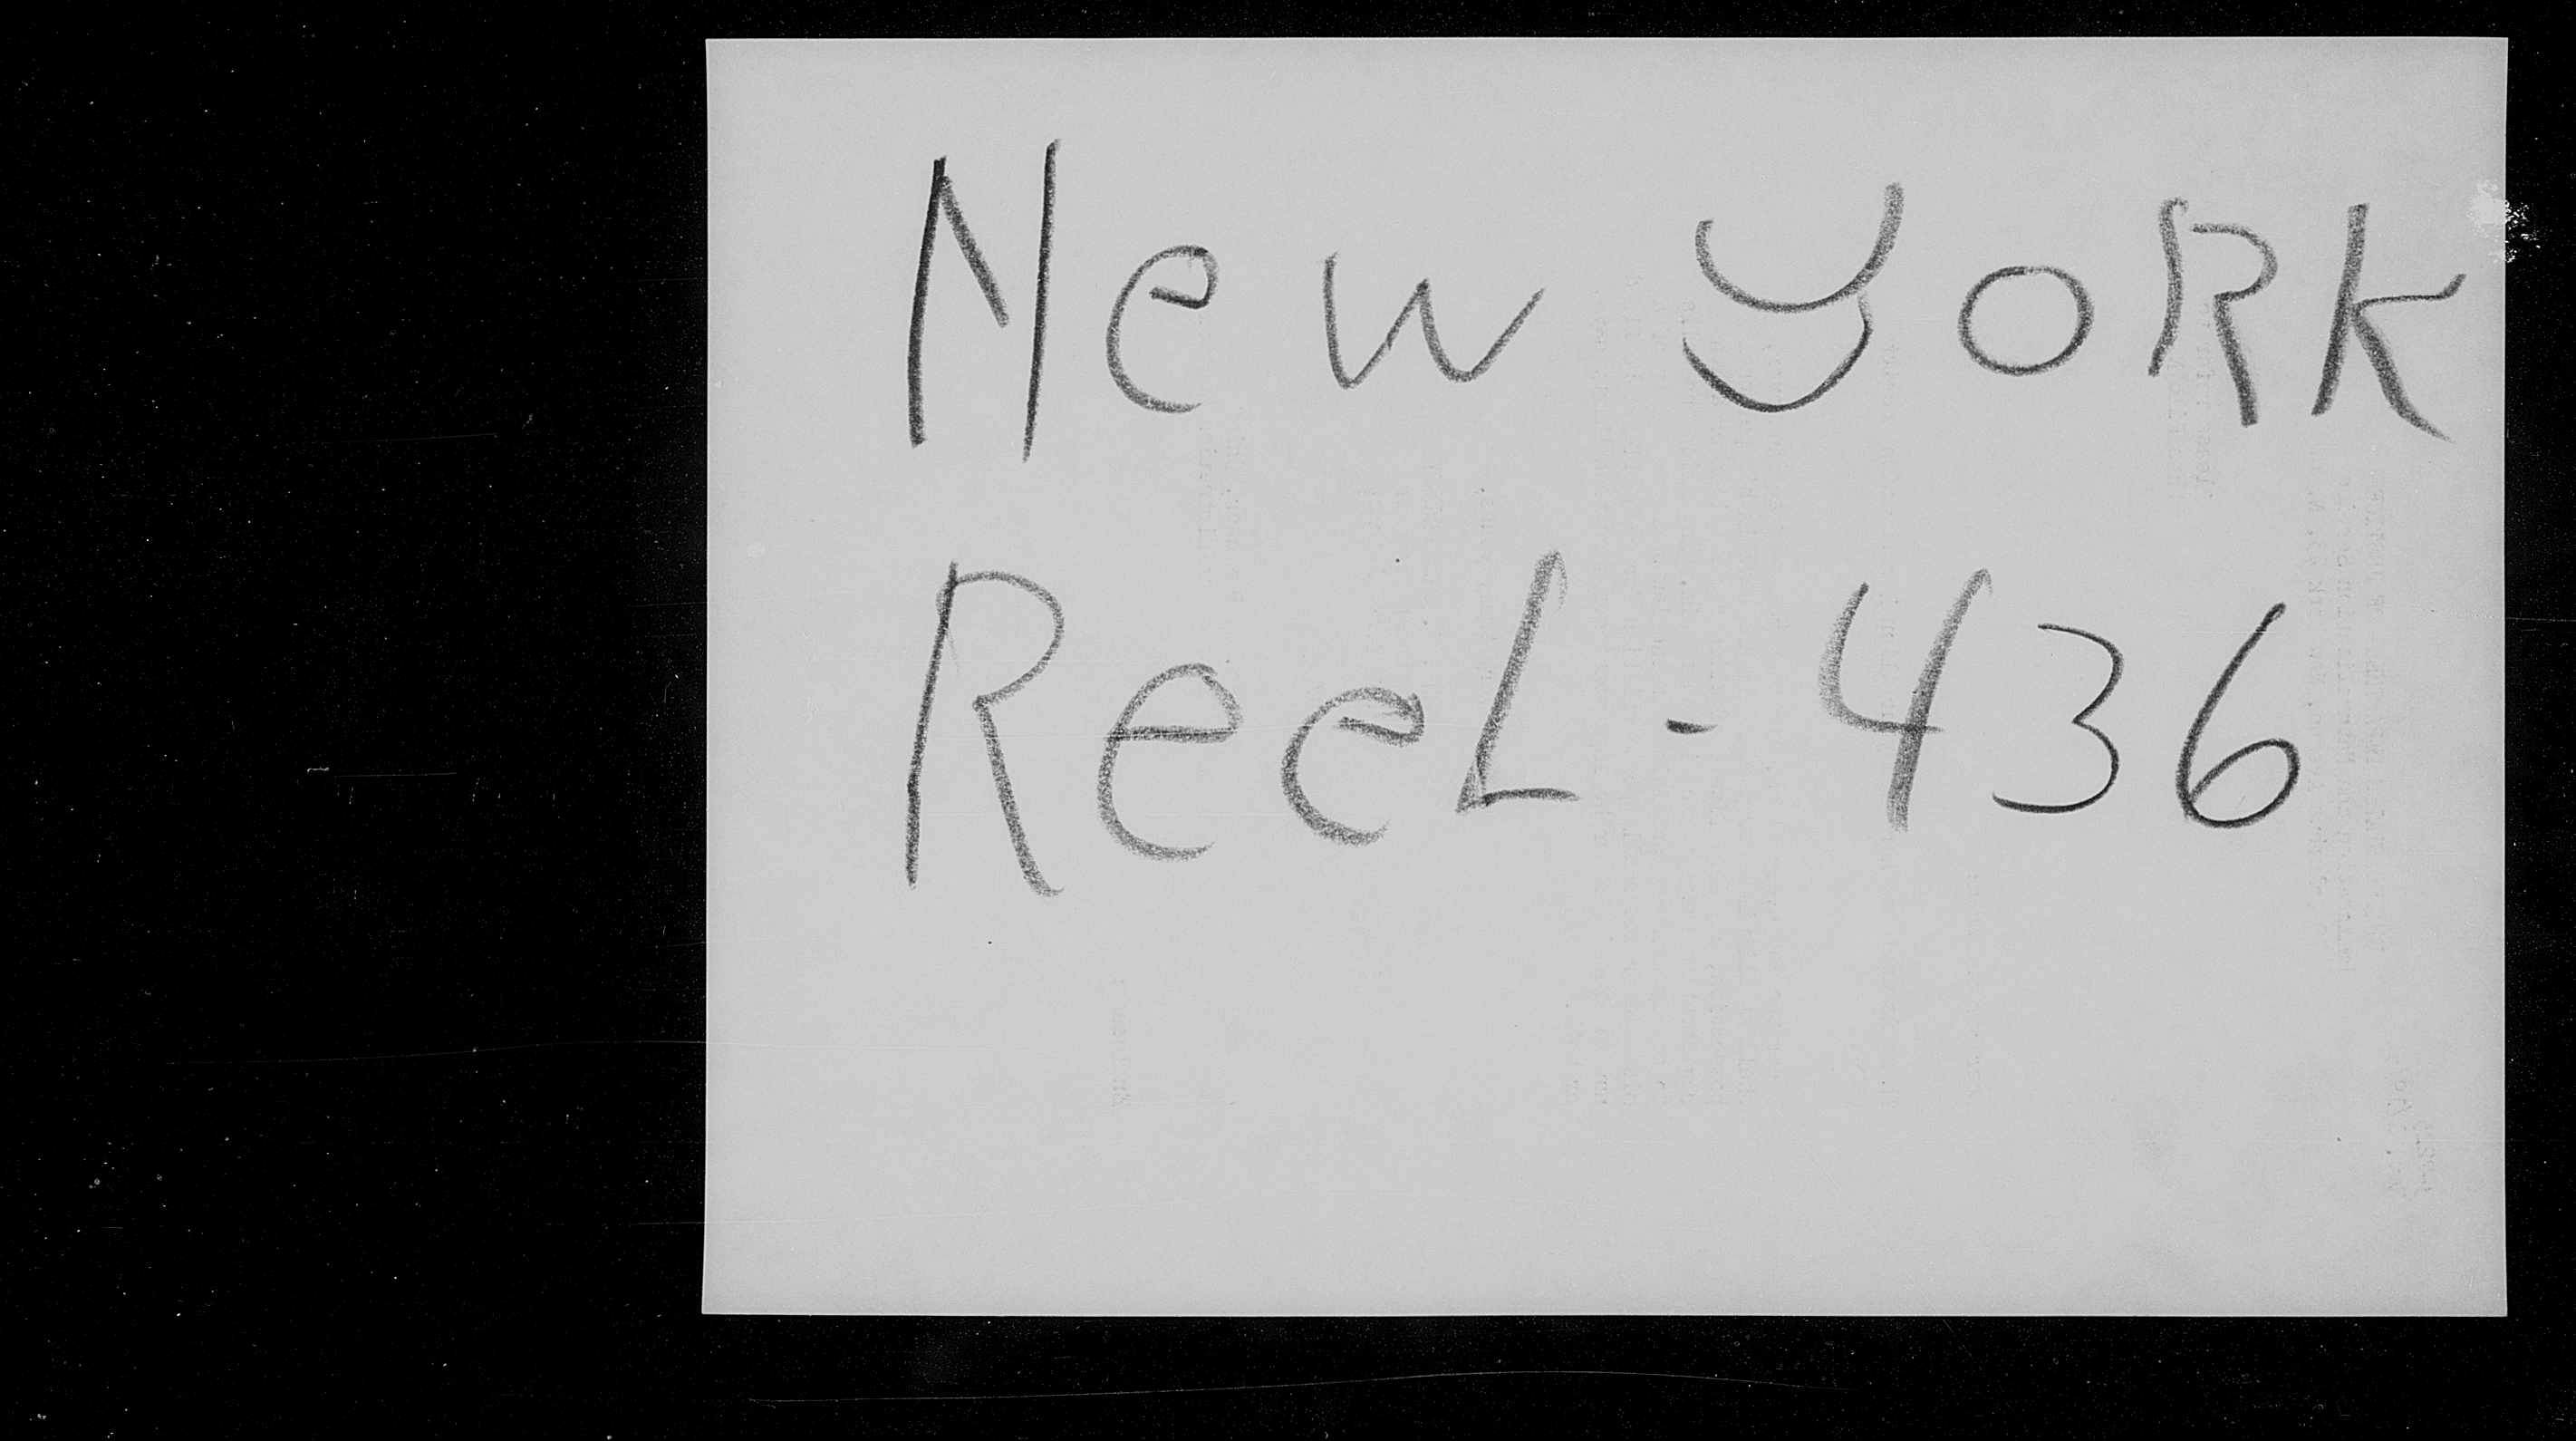 New YORK
ReeL - 436